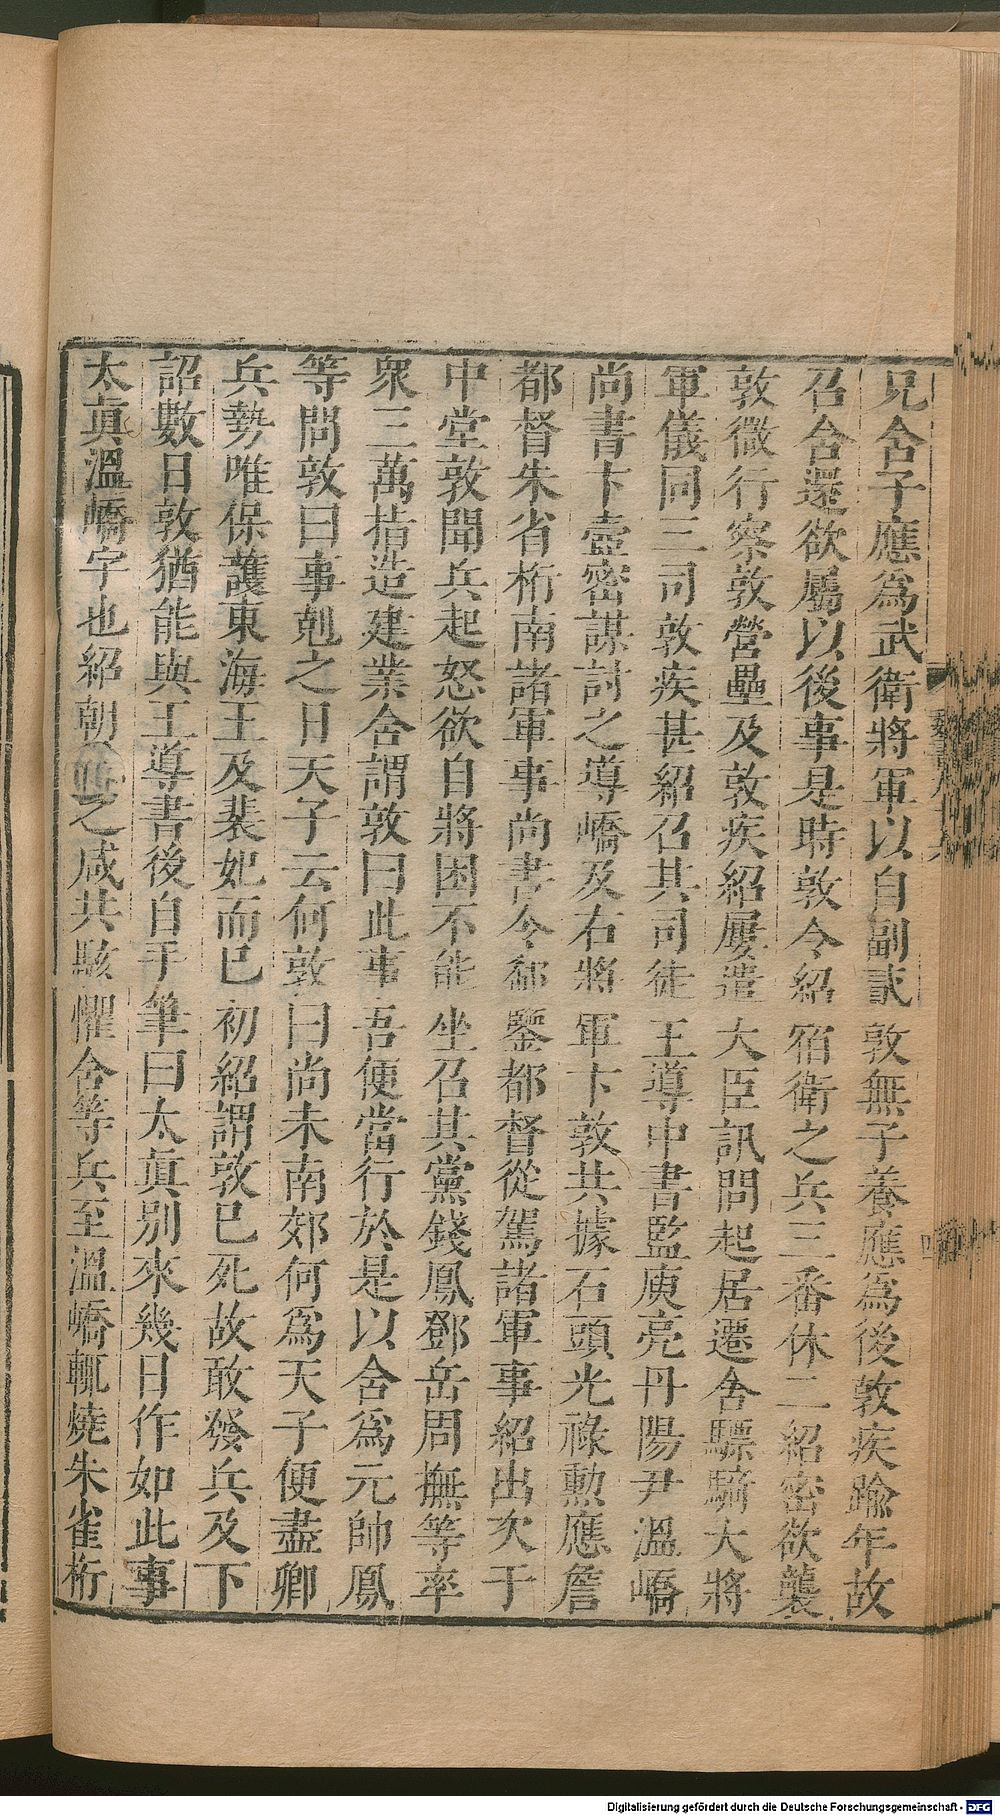 兄含子應爲武衛將軍以自副貳敦無子養應爲後敦疾踰年故
召含還欲屬以後事是時敦令紹宿衛之兵三番休二紹密欲襲
敦微行察敦營壘及敦疾紹屢遣大臣訊問起居遷含驃騎大將
軍儀同三司敦疾甚紹召其司徒王導中書監庾亮丹陽尹溫嶠
尚書卞壼密謀討之導嶠及右將軍卞敦共據石頭光祿勲應詹
都督朱省桁南諸軍事尚書令郗鑒都督從駕諸軍事紹出次于
中堂敦聞兵起怒欲自將困不能坐召其黨錢鳳鄧岳周撫等率
衆三萬指造建業含謂敦曰此事吾便當行於是以含爲元帥鳳
等問敦曰事剋之日天子云何敦曰尚未南郊何爲天子便盡卿
兵勢唯保護東海王及裴妃而已初紹謂敦已死故敢發兵及下
詔數日敦猶能與王導書後自手筆曰太眞別來幾日作如此事
太眞溫嶠字也紹朝見之咸共駭懼含等兵至溫嶠輒燒朱雀桁
Digitalisierung gefördert durch die Deutsche Forschungsgemeinschaft - DFG